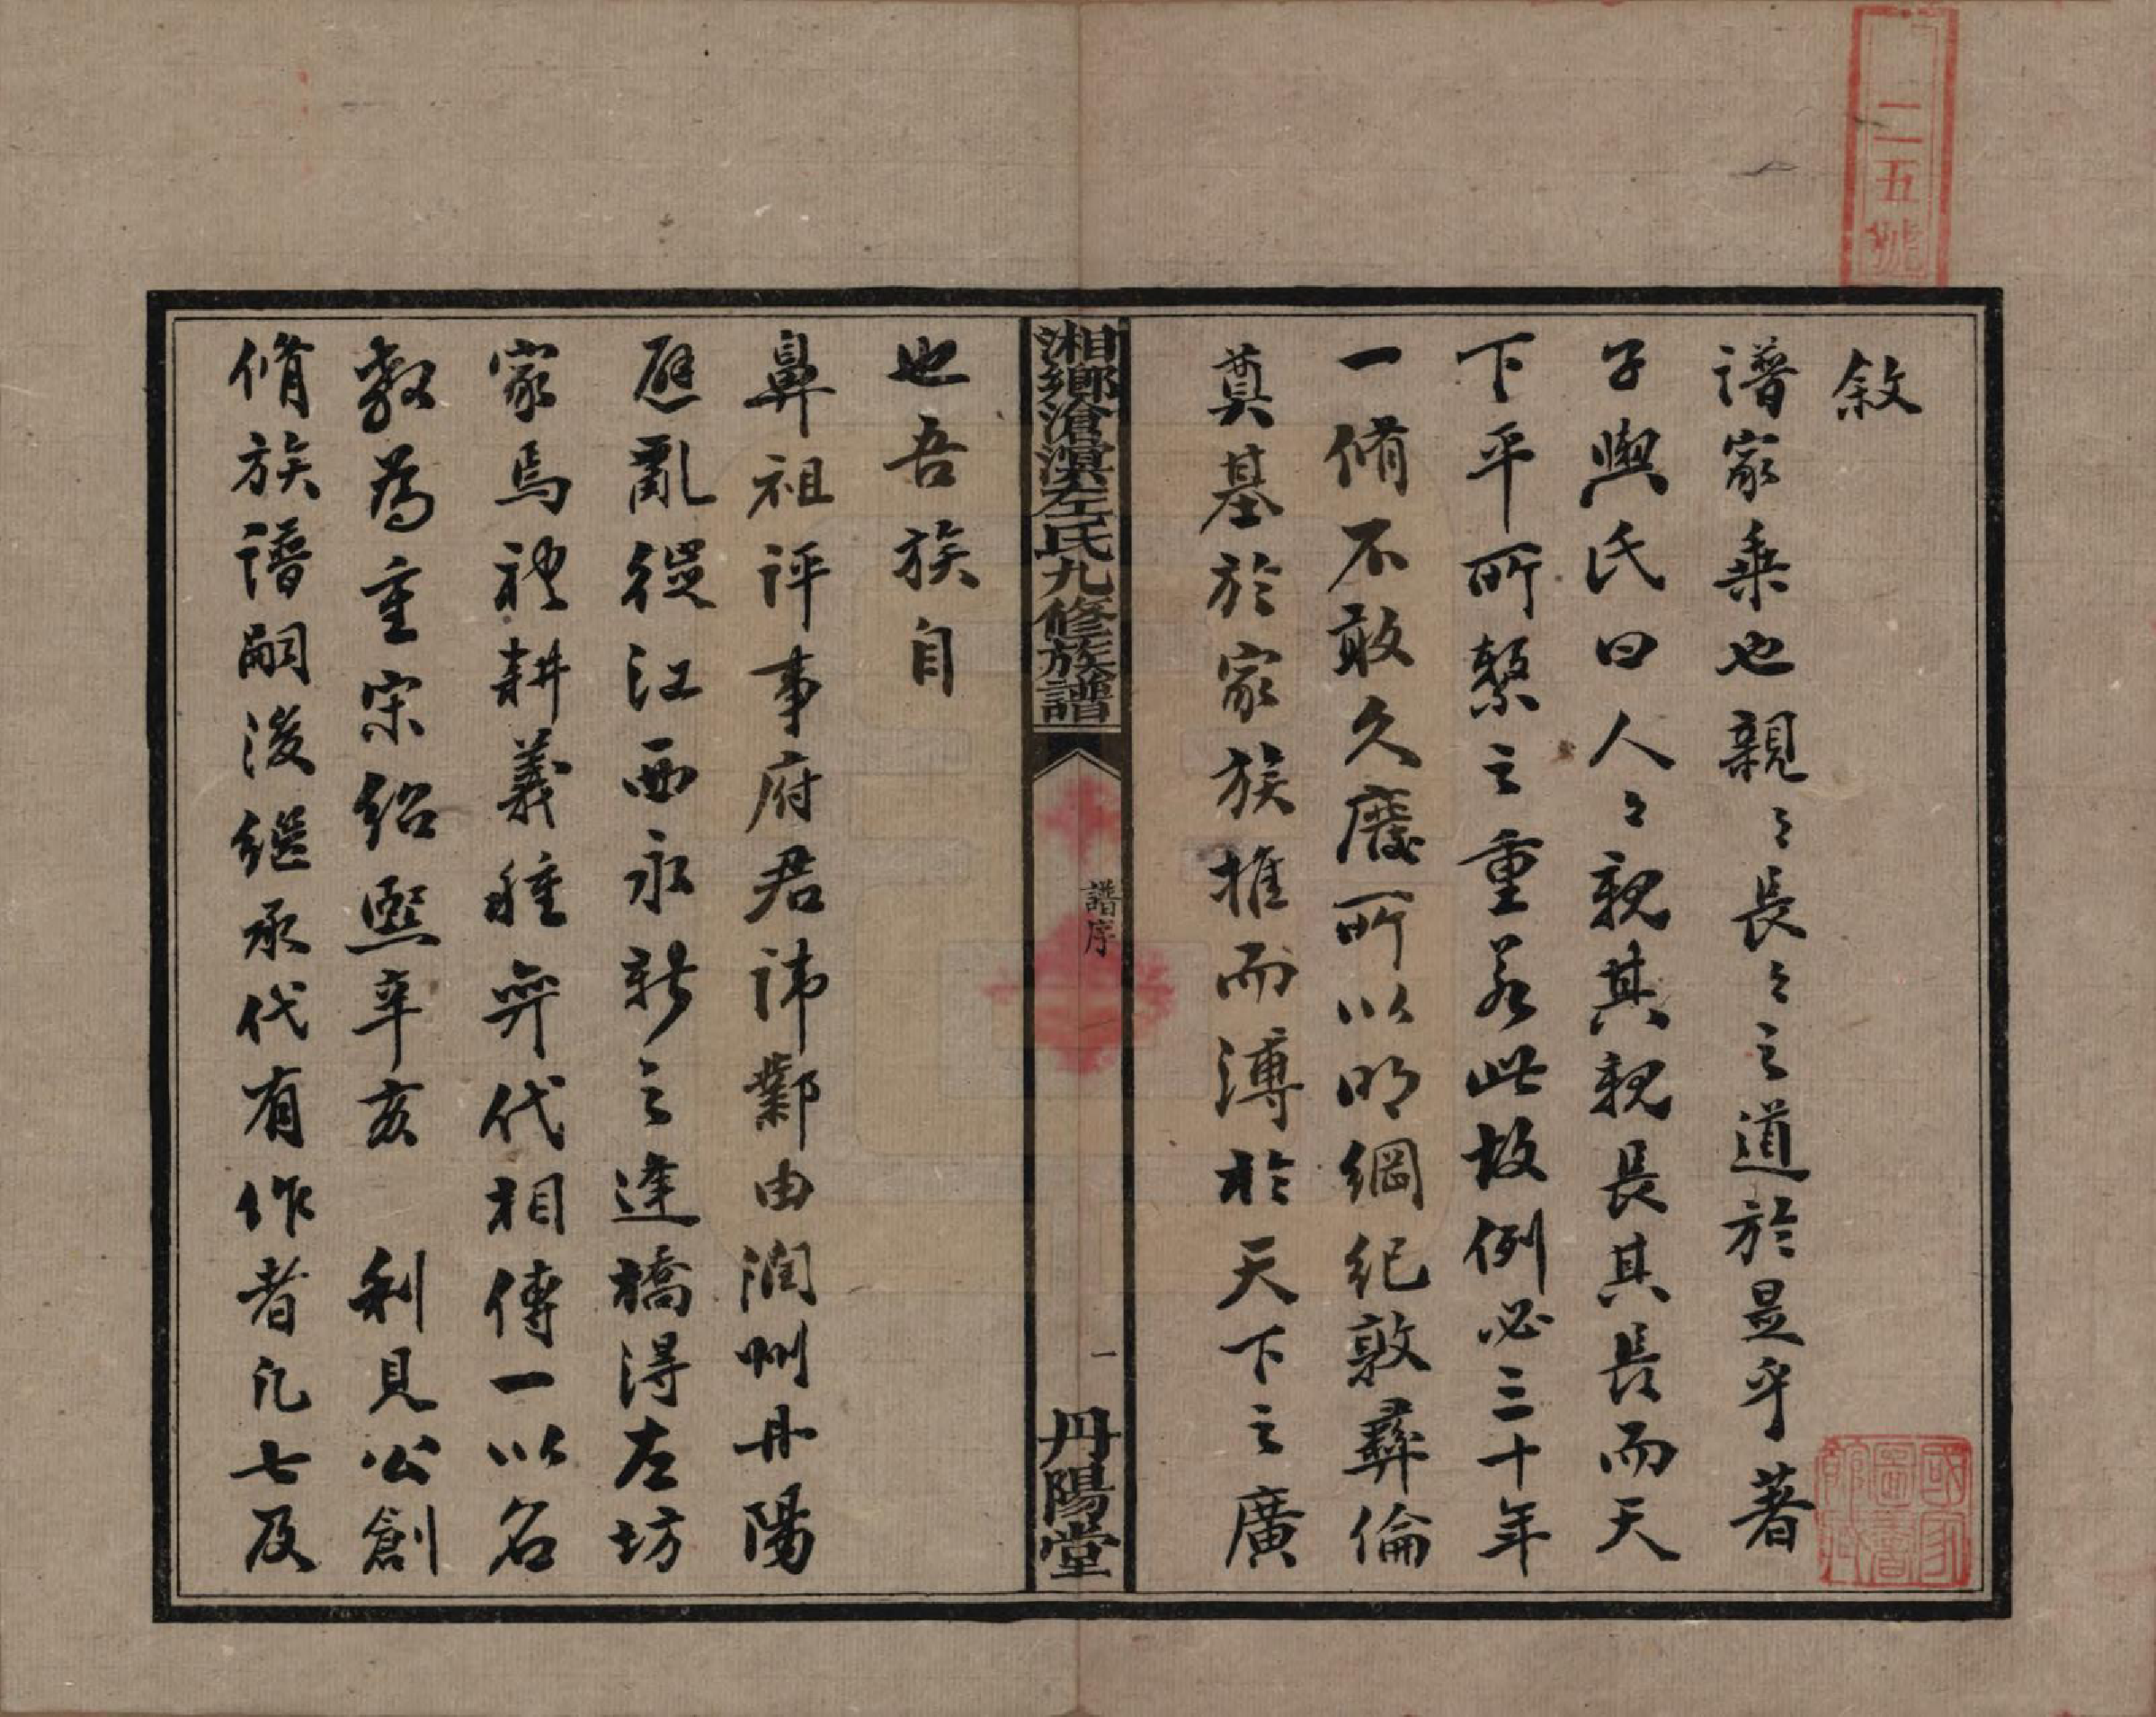 二五號
敘
譜家乘也親〻長〻之道於是乎著
子輿氏曰人〻親其親長其長而天
下平所繫之重若此故例必三十年
一脩不敢久廢所以明綱紀敦彝倫
奠基於家族推而溥於天下之廣
國家圖書館藏
湘鄉滄溪左氏九修族譜
譜序
一
丹陽堂
也吾族自
鼻祖評事府君諱鄴由潤州丹陽
避亂從江西永新之逢橋得左坊
家焉禮耕義種弈代相傳一以名
教為重宋紹熙辛亥 利見公創
脩族譜嗣後繼承代有作者凡七及